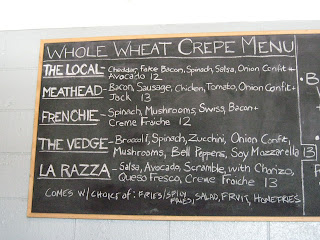 WHOLE WHEAT CREPE MENU
THE LOCAL - Cheddar, Fake Bacon, Spinach, Salsa, Onion Confit +
Avocado 12
MEATHEAD - Bacon, Sausage, Chicken, Tomato, Onion Confit +
Jack 13
FRENCHIE - Spinach, Mushrooms, Swiss, Bacon +
Creme Fraiche 12
THE VEDGE - Broccoli, Spinach, Zucchini, Onion Confit,
Mushrooms, Bell Peppers, Soy Mozzarella 13
LA RAZZA - Salsa, Avocado, Scramble, with Chorizo,
Queso Fresco, Creme Fraiche 13
COMES W/ CHOICE OF: FRIES/SPICY FRIES, SALAD, FRUIT, HOMEFRIES